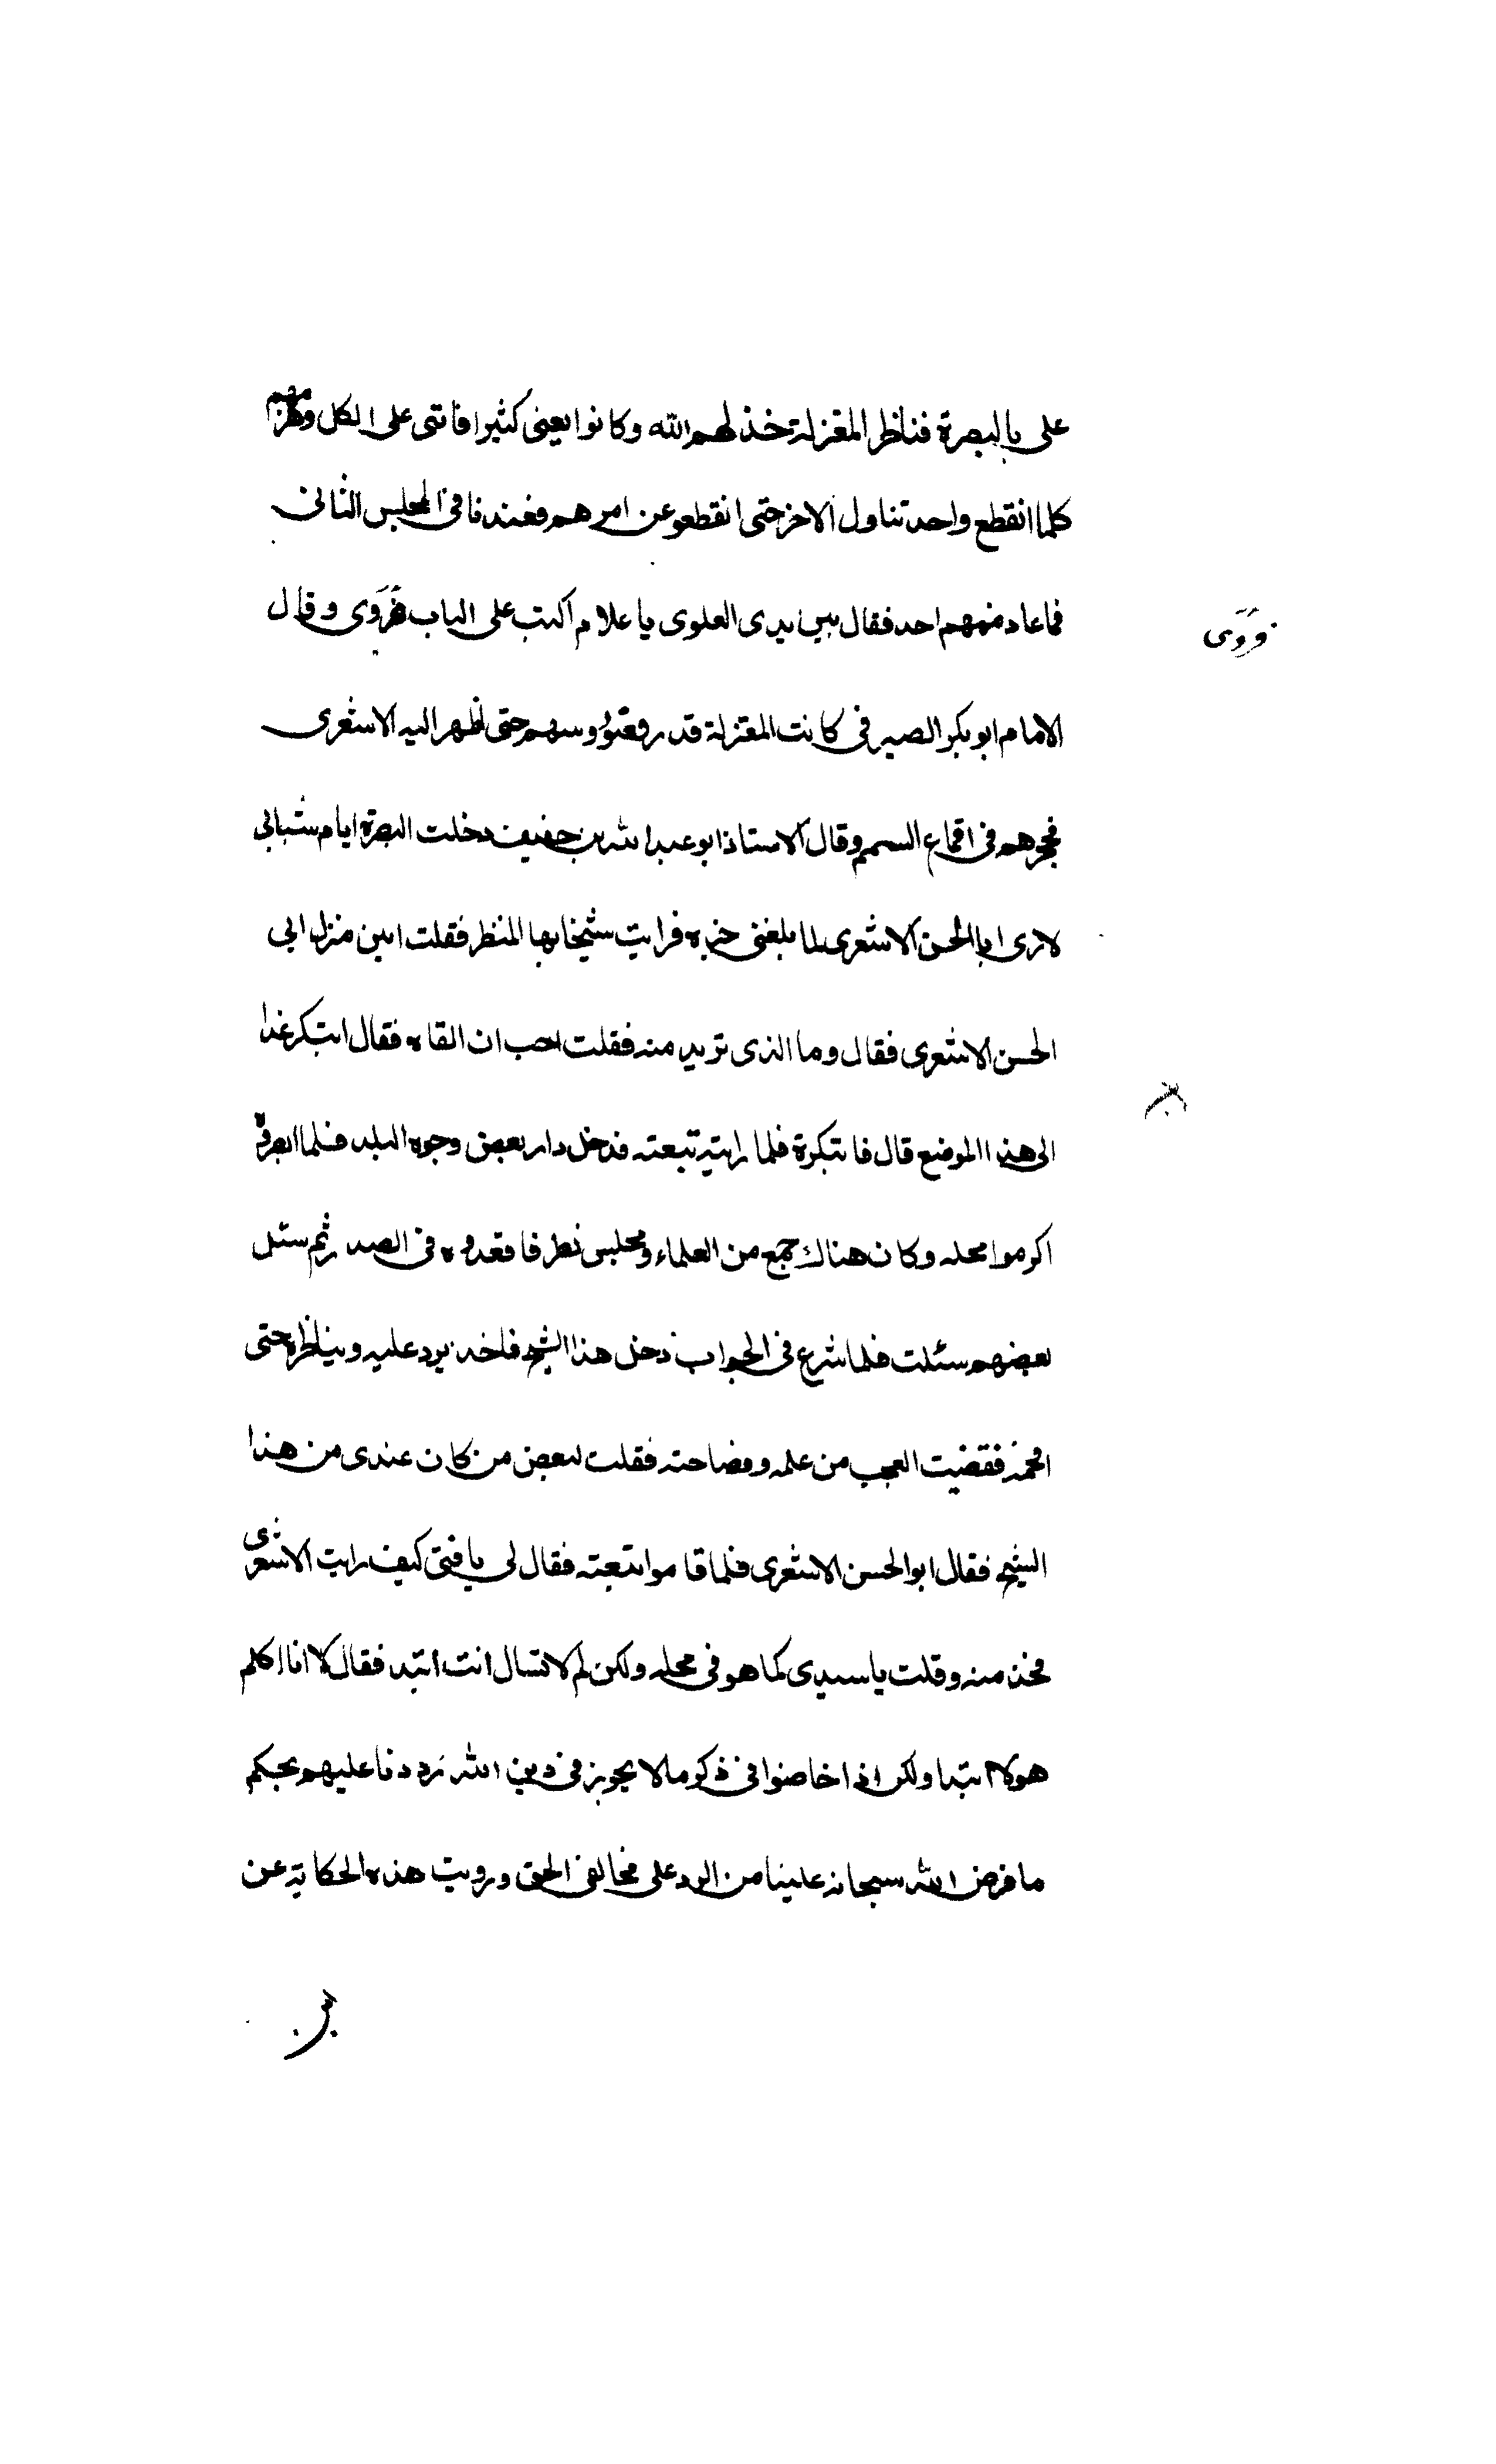 على بالبصرة فناظر المعتزلة خذلهم الله وكانوا يعنى كثيرا فاتى على الكل وهزمهم
كلما انقطع واحد تناول الاخر حتى انقطعو عن امرهم فغندنا فى المجلس الثانى
فما عاد منهم احد فقال بين يدى العلوى يا علام اكتب على الباب فروى وقال
فروى
الامام ابو بكر الصيرفى كانت المعتزلة قد رفعوا روسهم حتى اظهر اليه الاشعرى
فحجرهم فى اقماع السمسم وقال الاستاذ ابو عبد الله بن خفيف دخلت البصرة ايام شبابى
لارى ابا الحسن الاشعرى لما بلغنى خبره فرايت شيخا بها المنظر فقلت اين منزل ابى
الحسن الاشعرى فقال وما الذى تريد منه فقلت احب ان القاه فقال ابتكر غدا
الى هذا الموضع قال فابتكرة فلما رايته تبعته فدخل دار بعض وجوه البلد فلما ابصروه
اكرموا محله وكان هناك جمع من العلماء ومجلس نظر فاقعدوه فى الصدر ثم سئل
بعضهم سئلت فلما شرع فى الجواب دخل هذا الشيخ فاخذ يرد عليه ويناظره حتى
افحمه فقضيت العجب من علمه وفصاحته فقلت لبعض من كان عندى من هذا
الشيخ فقال ابو الحسن الاشعرى فلما قاموا تبعته فقال لى يا فتى كيف رايت الاشعرى
فخذ منه وقلت يا سيدى كما هو فى محله ولكن لم لا تسال انت ابتد فقال لا انا اكلم
هولاء ابتدا ولكن اذا خاضوا فى ذكر ما لا يجوز فى دين الله رددنا عليهم بحكم
ما فرض الله سبحانه علينا من الرد على مخالفى الحق ورويت هذه الحكاية عن